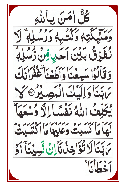 كُلٌّ اٰمَنَ بِاللّٰهِ
وَمَلٰٓئِكَتِهٖ وَكُتُبِهٖ وَرُسُلِهٖ ۫ لَا
نُفَرِّقُ بَيْنَ اَحَدٍ مِّنْ رُّسُلِهٖ ۫
وَقَالُوْا سَمِعْنَا وَاَطَعْنَا ۫ غُفْرَانَكَ
رَبَّنَا وَاِلَيْكَ الْمَصِيْرُ ۝ لَا
يُكَلِّفُ اللّٰهُ نَفْسًا اِلَّا وُسْعَهَا ؕ
لَهَا مَا كَسَبَتْ وَعَلَيْهَا مَا اكْتَسَبَتْ ؕ
رَبَّنَا لَا تُؤَاخِذْنَاۤ اِنْ نَّسِيْنَاۤ اَوْ
اَخْطَاْنَا ۚ